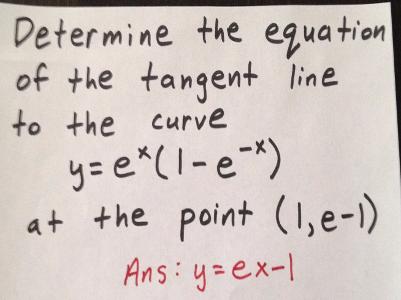 Determine the equation
of the tangent line
to the curve
y=eˣ(1-e⁻ˣ)
at the point (1,e-1)
Ans: y=ex-1